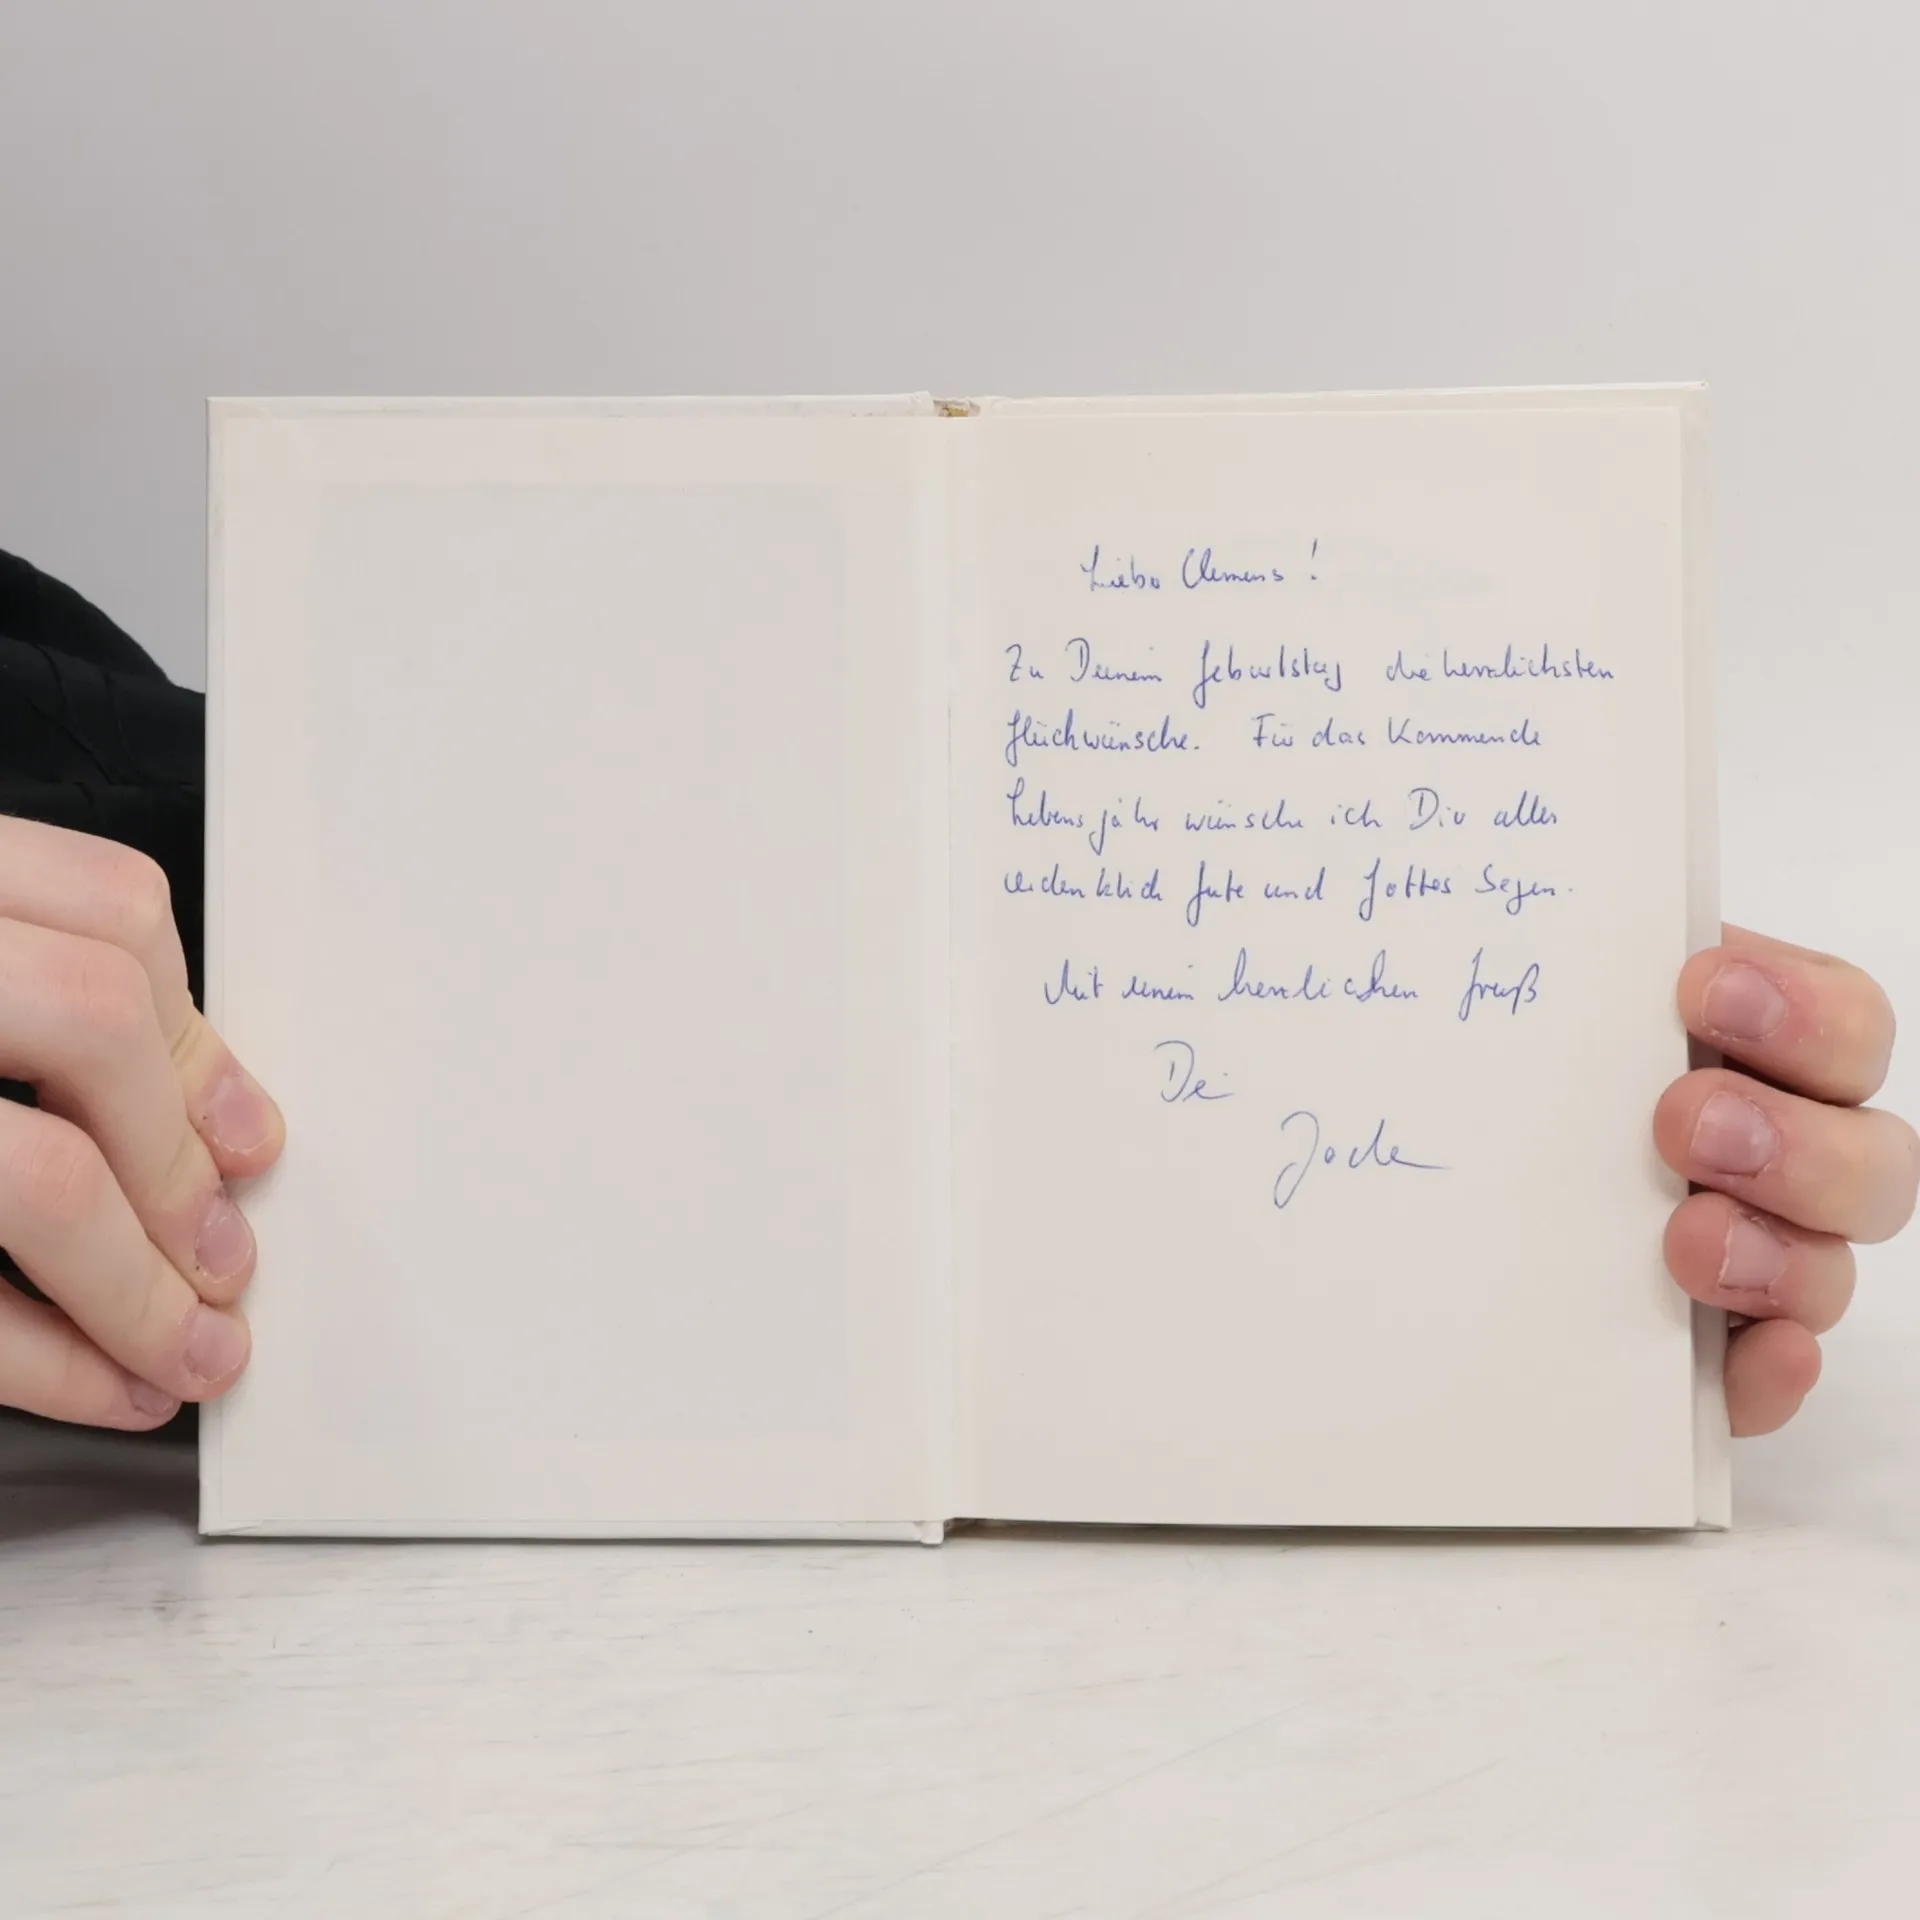 Lieber Clemens!
Zu Deinem Geburtstag die herzlichsten
Glückwünsche. Für das Kommende
Lebensjahr wünsche ich Dir alles
erdenklich Gute und Gottes Segen.
Mit einem herzlichen Gruß
Dei